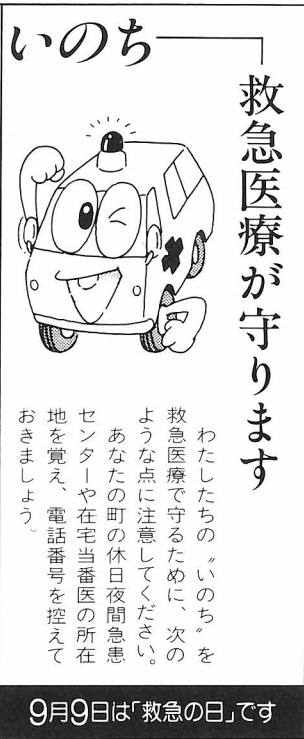 いのち
救急医療が守ります
わたしたちの〝いのち〟を
救急医療で守るために、次の
ような点に注意してください。
あなたの町の休日夜間急患
センターや在宅当番医の所在
地を覚え、電話番号を控えて
おきましょう。
9月9日は「救急の日」です